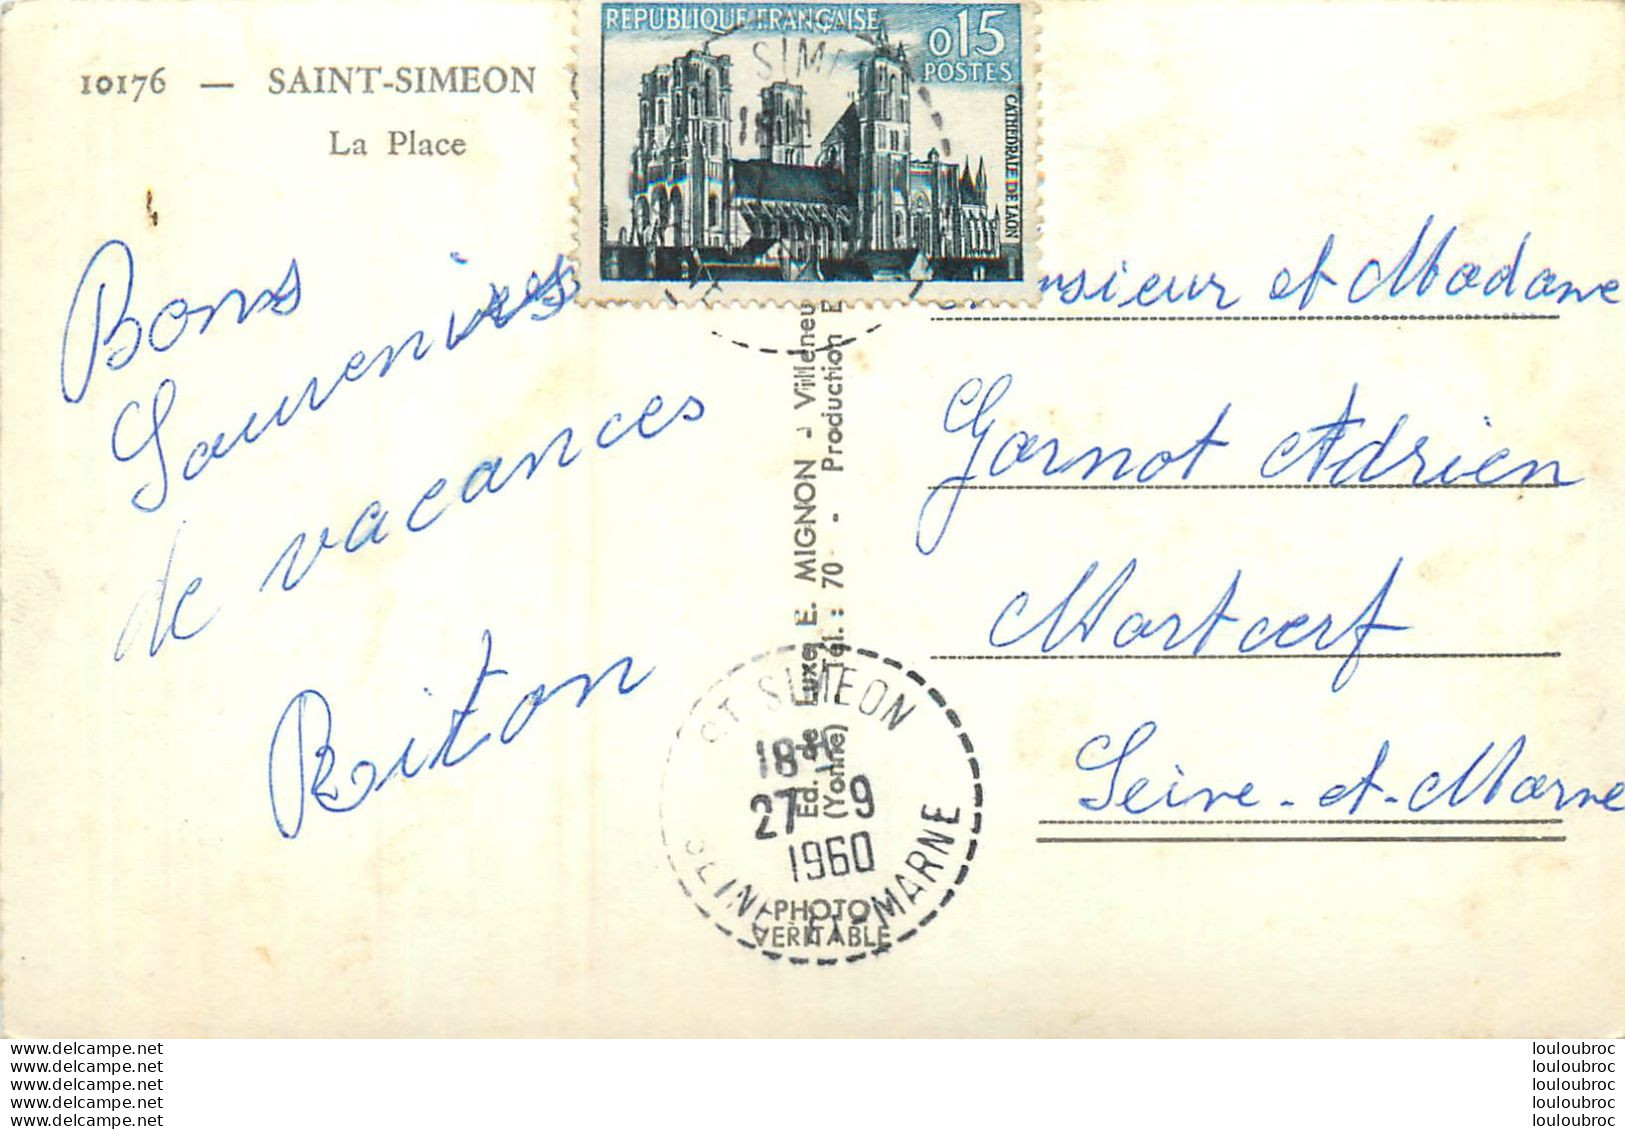 10176 — SAINT-SIMEON
La Place
REPUBLIQUE FRANÇAISE
0,15
POSTES
CATHEDRALE DE LAON
SIME
18H
Bons
Souvenirs
de vacances
Briton
Ed. de Luxe E. MIGNON - Villeneu
(Yonne) - Tél. : 70 - Production E
PHOTO
VERITABLE
ST SIMEON
18H
27 - 9
1960
SEINE-ET-MARNE
nsieur et Madame
Garnot Adrien
Mortcerf
Seine-et-Marne
www.delcampe.net
www.delcampe.net
www.delcampe.net
www.delcampe.net
www.delcampe.net
louloubroc
louloubroc
louloubroc
louloubroc
louloubroc